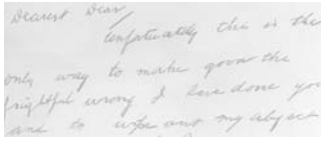 Dearest Dear,
Unfortuately this is the
only way to make good the
frightful wrong I have done you
and to wipe out my abject